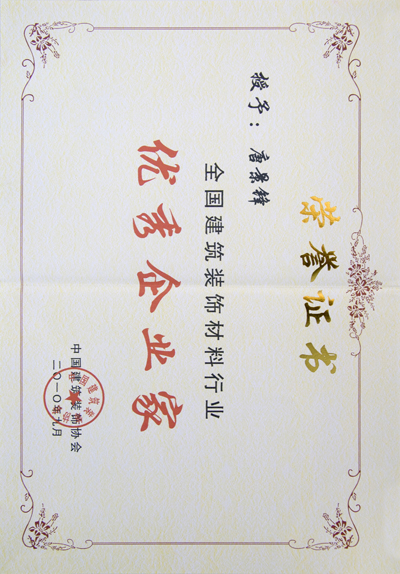 荣誉证书
授予：唐景锋
全国建筑装饰材料行业
优秀企业家
中国建筑装饰协会
二〇一〇年九月